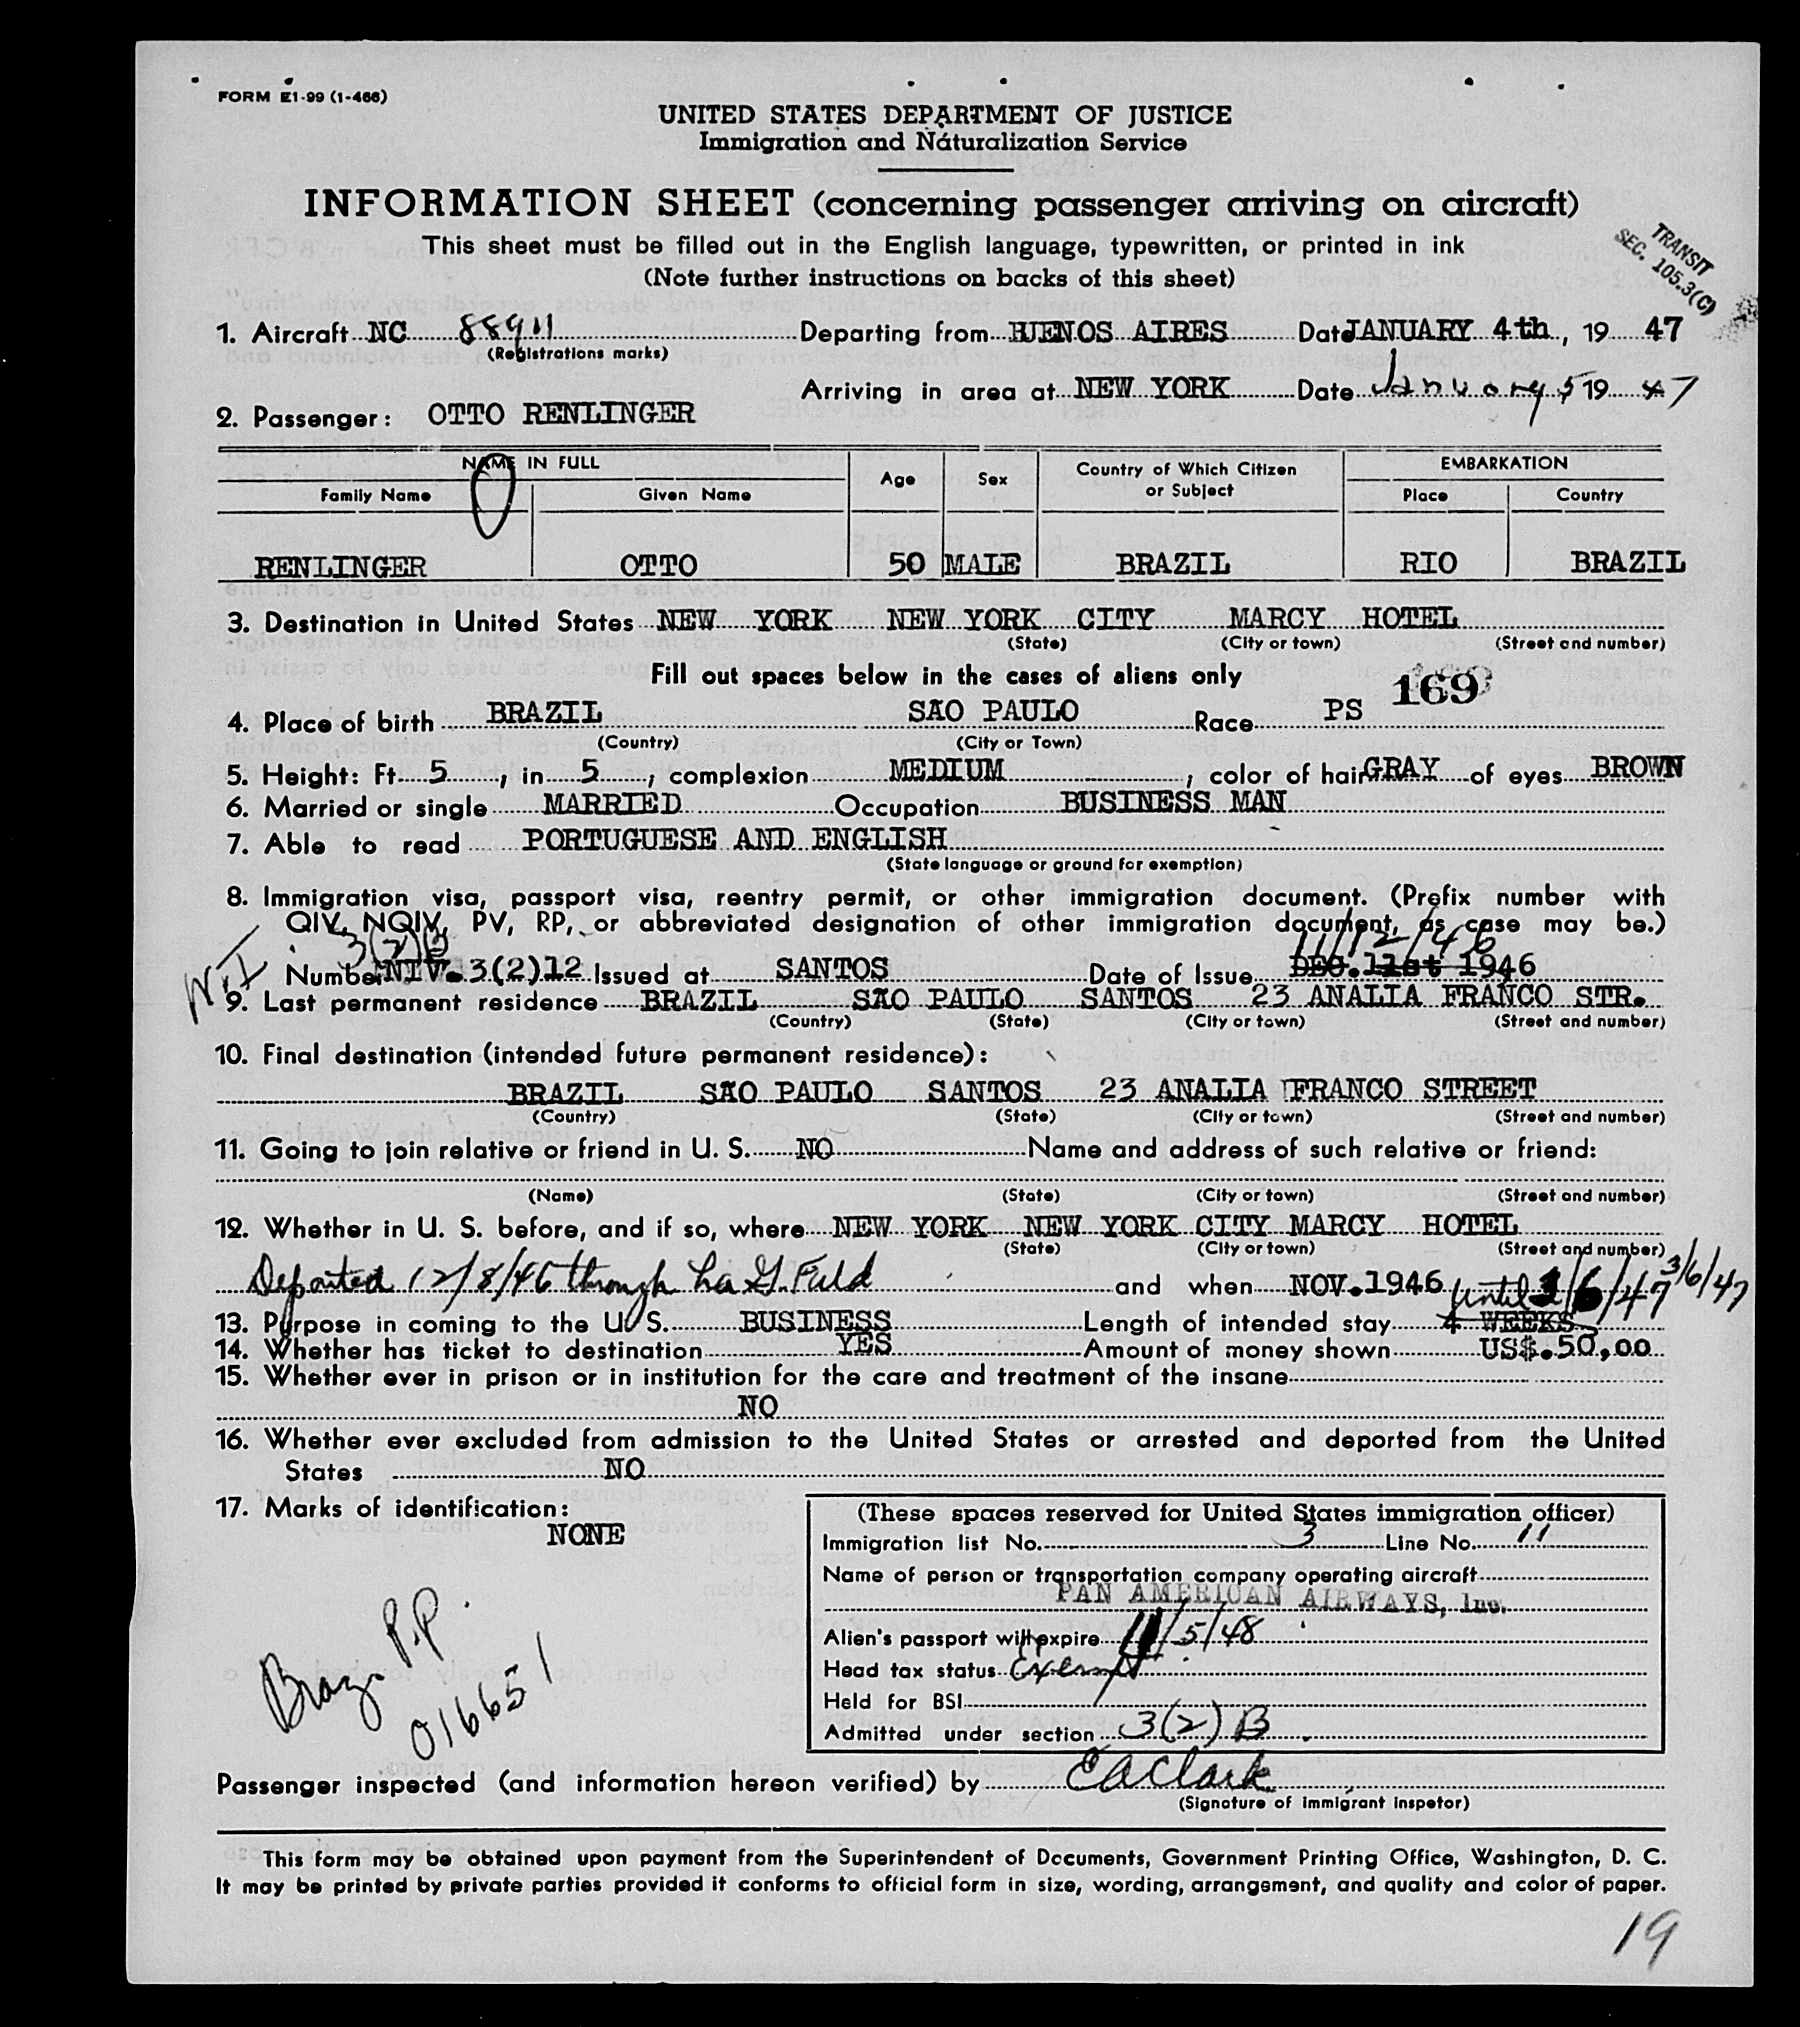 FORM E1-99 (1-466)
UNITED STATES DEPARTMENT OF JUSTICE
Immigration and Naturalization Service
INFORMATION SHEET (concerning passenger arriving on aircraft)
This sheet must be filled out in the English language, typewritten, or printed in ink
(Note further instructions on backs of this sheet)
TRANSIT
SEC. 105.3(C)
1. Aircraft NC 88911 Departing from BUENOS AIRES Date JANUARY 4th, 19 47
(Registrations marks)
Arriving in area at NEW YORK Date January 5 19 47
2. Passenger: OTTO RENLINGER
NAME IN FULL Age Sex Country of Which Citizen or Subject EMBARKATION
Family Name Given Name Place Country
RENLINGER OTTO 50 MALE BRAZIL RIO BRAZIL
3. Destination in United States NEW YORK NEW YORK CITY MARCY HOTEL
(State) (City or town) (Street and number)
Fill out spaces below in the cases of aliens only
169
4. Place of birth BRAZIL SAO PAULO Race PS
(Country) (City or Town)
5. Height: Ft. 5, in. 5; complexion MEDIUM; color of hair GRAY of eyes BROWN
6. Married or single MARRIED Occupation BUSINESS MAN
7. Able to read PORTUGUESE AND ENGLISH
(State language or ground for exemption)
8. Immigration visa, passport visa, reentry permit, or other immigration document. (Prefix number with
QIV, NQIV, PV, RP, or abbreviated designation of other immigration document, as case may be.)
3(2)B 11/12/46
Number NIV. 3(2)12 Issued at SANTOS Date of Issue DEC. 11st 1946
9. Last permanent residence BRAZIL SAO PAULO SANTOS 23 ANALIA FRANCO STR.
(Country) (State) (City or town) (Street and number)
10. Final destination (intended future permanent residence):
BRAZIL SAO PAULO SANTOS 23 ANALIA FRANCO STREET
(Country) (State) (City or town) (Street and number)
11. Going to join relative or friend in U. S. NO Name and address of such relative or friend:
(Name) (State) (City or town) (Street and number)
12. Whether in U. S. before, and if so, where NEW YORK NEW YORK CITY MARCY HOTEL
(State) (City or town) (Street and number)
Departed 12/8/46 through La G. Field and when NOV. 1946 until /6/47 3/6/47
13. Purpose in coming to the U. S. BUSINESS Length of intended stay 4 WEEKS
14. Whether has ticket to destination YES Amount of money shown US$.50,00
15. Whether ever in prison or in institution for the care and treatment of the insane
NO
16. Whether ever excluded from admission to the United States or arrested and deported from the United
States NO
17. Marks of identification:
NONE
Braz. P.P.
016651
(These spaces reserved for United States immigration officer)
Immigration list No. 3 Line No. 11
Name of person or transportation company operating aircraft
PAN AMERICAN AIRWAYS, Inc.
Alien's passport will expire 11/5/48
Head tax status Exempt
Held for BSI
Admitted under section 3(2)B
Passenger inspected (and information hereon verified) by E A Clark
(Signature of immigrant inspetor)
This form may be obtained upon payment from the Superintendent of Documents, Government Printing Office, Washington, D. C.
It may be printed by private parties provided it conforms to official form in size, wording, arrangement, and quality and color of paper.
19